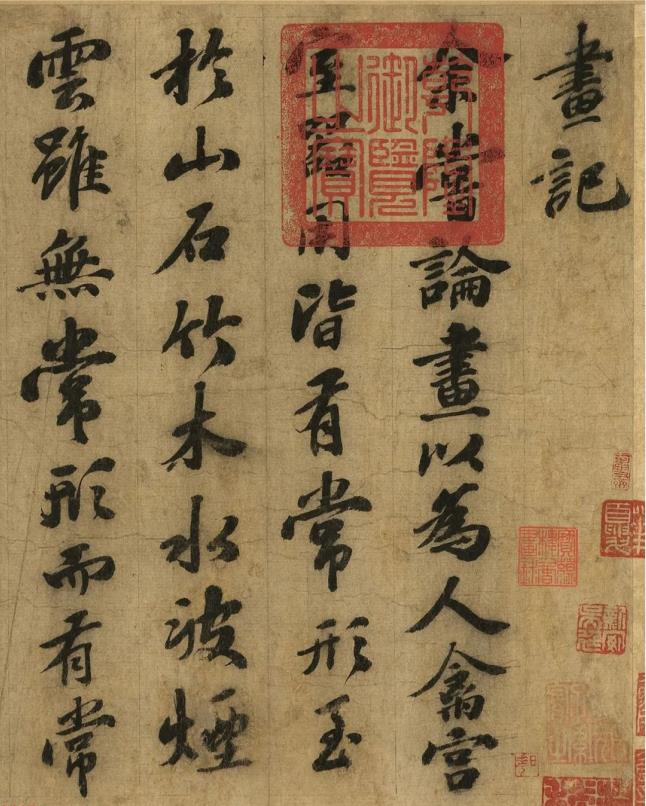 畫記
余嘗論畫以為人禽宮
室器用皆有常形至
於山石竹木水波煙
雲雖無常形而有常